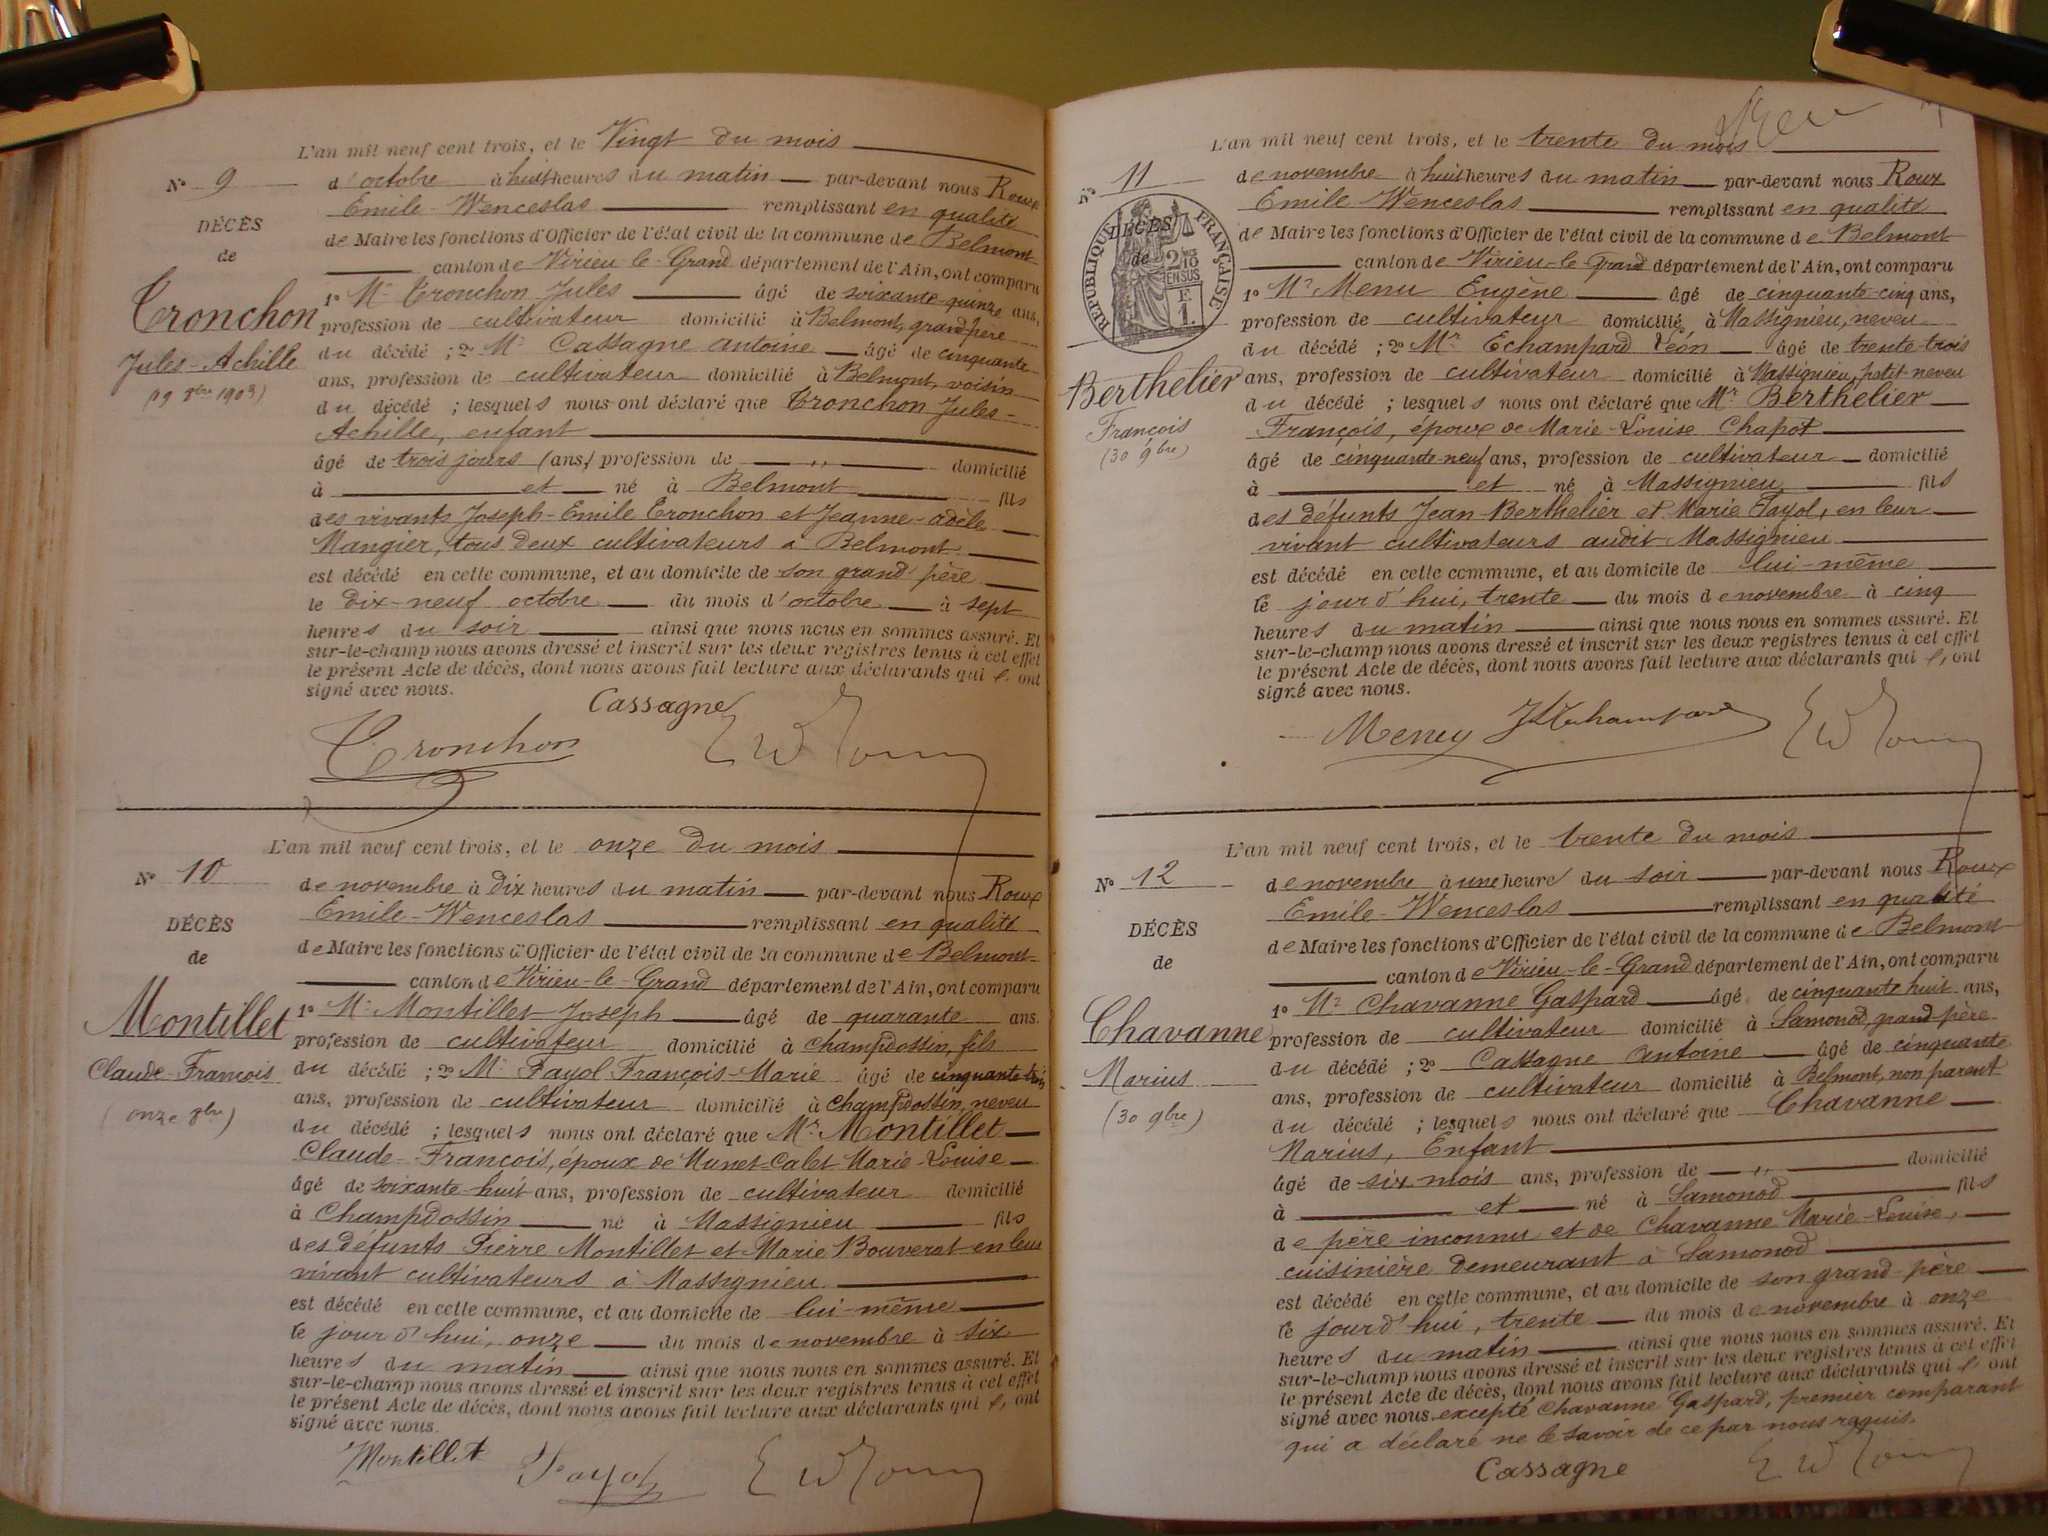 L'an mil neuf cent trois, et le Vingt du mois
N° 9
d'octobre à huit heures du matin par-devant nous Roux
Emile-Wenceslas remplissant en qualité
DÉCÈS
de Maire les fonctions d'Officier de l'état civil de la commune de Belmont
de
canton de Virieu-le-Grand département de l'Ain, ont comparu
Cronchon
1° Mr Cronchon Jules âgé de soixante-quinze ans,
profession de cultivateur domicilié à Belmont, grand père
Jules-Achille
du décédé ; 2° Mr Cassagne Antoine âgé de cinquante
(19 8bre 1903)
ans, profession de cultivateur domicilié à Belmont, voisin
du décédé ; lesquels nous ont déclaré que Cronchon Jules-
Achille, enfant
âgé de trois jours (ans,) profession de " domicilié
à et né à Belmont fils
des vivants Joseph-Emile Cronchon et Jeanne-adèle
Mangier, tous deux cultivateurs à Belmont
est décédé en cette commune, et au domicile de son grand père
le dix-neuf octobre du mois d'octobre à sept
heures du soir ainsi que nous nous en sommes assuré. Et
sur-le-champ nous avons dressé et inscrit sur les deux registres tenus à cet effet
le présent Acte de décès, dont nous avons fait lecture aux déclarants qui l'ont
signé avec nous.
Cassagne
Cronchon EWRoux
L'an mil neuf cent trois, et le onze du mois
N° 10
de novembre à dix heures du matin par-devant nous Roux
Emile-Wenceslas remplissant en qualité
DÉCÈS
de Maire les fonctions d'Officier de l'état civil de la commune de Belmont
de
canton de Virieu-le-Grand département de l'Ain, ont comparu
Montillet
1° Mr Montillet Joseph âgé de quarante ans.
profession de cultivateur domicilié à Champdossin, fils
Claude-François
du décédé ; 2° Mr Fayol François-Marie âgé de cinquante-trois
(onze 9bre)
ans, profession de cultivateur domicilié à Champdossin, neveu
du décédé ; lesquels nous ont déclaré que Mr Montillet
Claude-François, époux de Munet-Calet Marie-Louise
âgé de soixante-huit ans, profession de cultivateur domicilié
à Champdossin né à Massignieu fils
des défunts Pierre Montillet et Marie Bouverat en leur
vivant cultivateurs à Massignieu
est décédé en cette commune, et au domicile de lui-même
le jourd'hui, onze du mois de novembre à six
heures du matin ainsi que nous nous en sommes assuré. Et
sur-le-champ nous avons dressé et inscrit sur les deux registres tenus à cet effet
le présent Acte de décès, dont nous avons fait lecture aux déclarants qui l'ont
signé avec nous.
Montillet Fayol EWRoux
L'an mil neuf cent trois, et le trente du mois
N° 11
de novembre à huit heures du matin par-devant nous Roux
Emile-Wenceslas remplissant en qualité
RÉPUBLIQUE FRANÇAISE
DÉCÈS
de
2/10 EN SUS
F 1.
de Maire les fonctions d'Officier de l'état civil de la commune de Belmont
canton de Virieu-le-Grand département de l'Ain, ont comparu
1° Mr Menu Eugène âgé de cinquante-cinq ans,
profession de cultivateur domicilié à Massignieu, neveu
du décédé ; 2° Mr Echampard Léon âgé de trente-trois
Berthelier
ans, profession de cultivateur domicilié à Massignieu, petit-neveu
François
du décédé ; lesquels nous ont déclaré que Mr Berthelier
(30 9bre)
François, époux de Marie-Louise Chapot
âgé de cinquante-neuf ans, profession de cultivateur domicilié
à et né à Massignieu fils
des défunts Jean Berthelier et Marie Fayol, en leur
vivant cultivateurs audit Massignieu
est décédé en cette commune, et au domicile de lui-même
le jourd'hui, trente du mois de novembre à cinq
heures du matin ainsi que nous nous en sommes assuré. Et
sur-le-champ nous avons dressé et inscrit sur les deux registres tenus à cet effet
le présent Acte de décès, dont nous avons fait lecture aux déclarants qui l'ont
signé avec nous.
EWRoux
L'an mil neuf cent trois, et le trente du mois
N° 12
de novembre à une heure du soir par-devant nous Roux
Emile-Wenceslas remplissant en qualité
DÉCÈS
de Maire les fonctions d'Officier de l'état civil de la commune de Belmont
de
canton de Virieu-le-Grand département de l'Ain, ont comparu
Chavanne
1° Mr Chavanne Gaspard âgé de cinquante huit ans,
profession de cultivateur domicilié à Samonod, grand-père
Marius
du décédé ; 2° Cassagne Antoine âgé de cinquante
(30 9bre)
ans, profession de cultivateur domicilié à Belmont, non parent
du décédé ; lesquels nous ont déclaré que Chavanne
Marius, Enfant
âgé de six mois ans, profession de " domicilié
à et né à Samonod fils
de père inconnu et de Chavanne Marie-Louise,
cuisinière demeurant à Samonod
est décédé en cette commune, et au domicile de son grand-père
le jourd'hui, trente du mois de novembre à onze
heures du matin ainsi que nous nous en sommes assuré. Et
sur-le-champ nous avons dressé et inscrit sur les deux registres tenus à cet effet
le présent Acte de décès, dont nous avons fait lecture aux déclarants qui l'ont
signé avec nous excepté Chavanne Gaspard, premier comparant
qui a déclaré ne le savoir de ce par nous requis.
Cassagne EWRoux